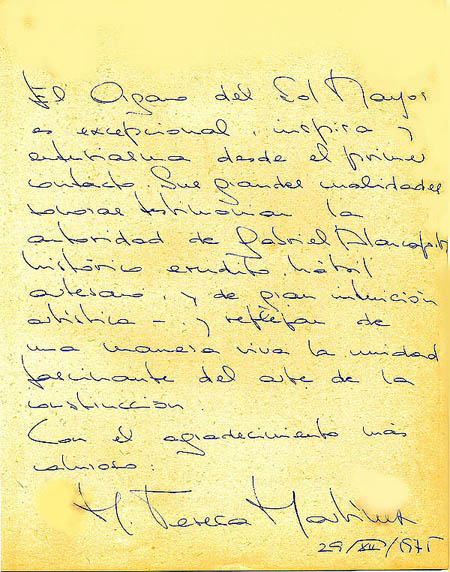 El Organo del Sol Mayor
es excepcional, inspira y
entusiasma desde el primer
contacto. Sus grandes cualidades
sonoras testimonian la
autoridad de Gabriel Blancafort,
histórico erudito, hábil
artesano, y de gran intuición
artística - y reflejan de
una manera viva la unidad
fascinante del arte de la
construcción.
Con el agradecimiento más
caluroso.
M. Teresa Martínez
29/XII/1975